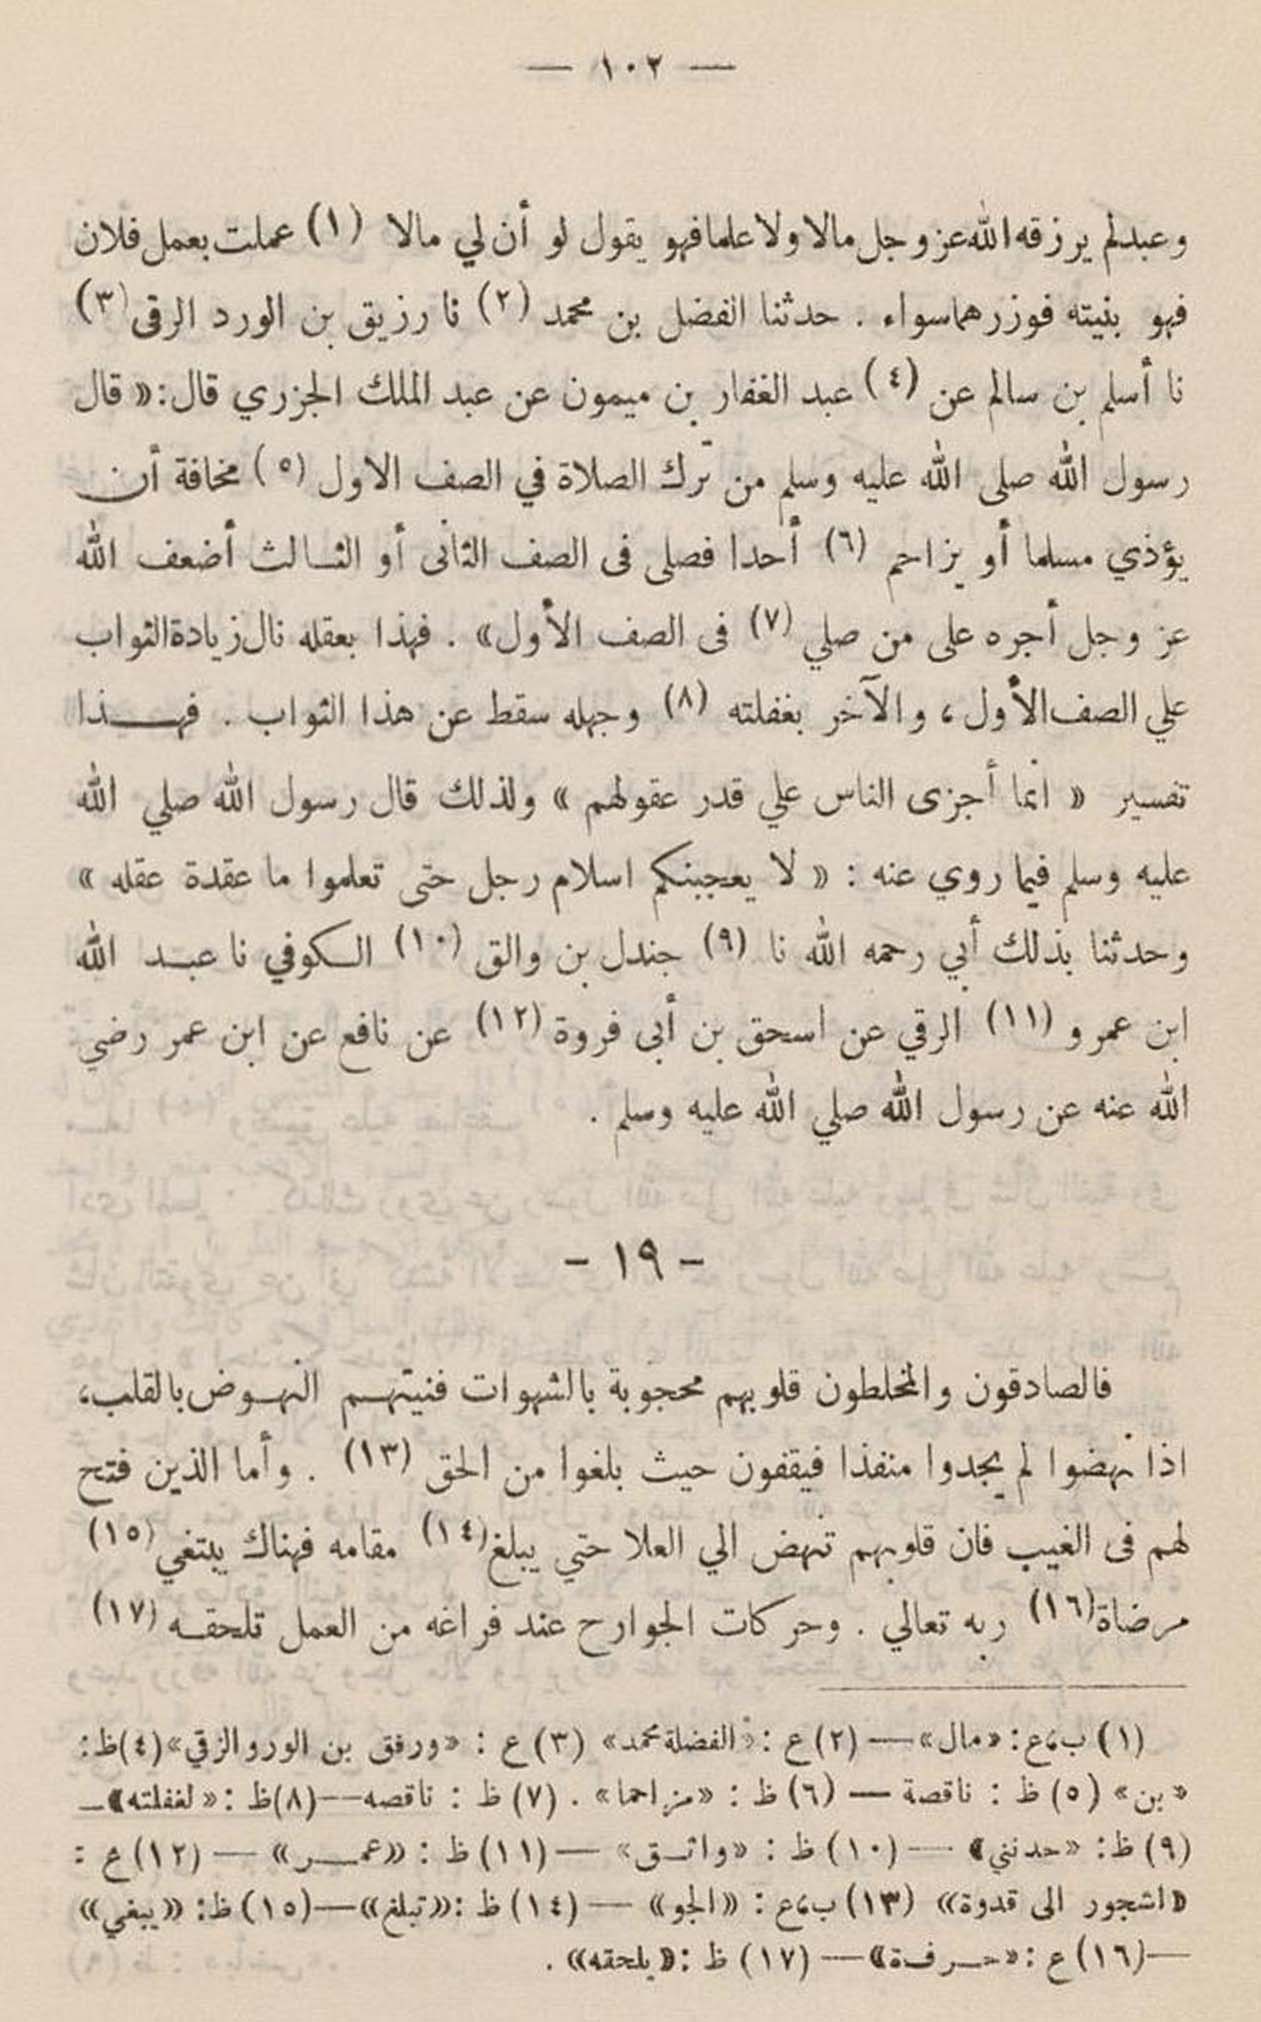 — ١٠٢ —
وعبد لم يرزقه الله عز وجل مالا ولا علما فهو يقول لو أن لي مالا (١) عملت بعمل فلان
فهو بنيته فوزرهما سواء . حدثنا الفضل بن محمد (٢) نا رزيق بن الورد الرقى (٣)
نا أسلم بن سالم عن (٤) عبد الغفار بن ميمون عن عبد الملك الجزري قال: « قال
رسول الله صلى الله عليه وسلم من ترك الصلاة في الصف الاول (٥) مخافة أن
يؤذي مسلما أو يزاحم (٦) أحدا فصلى فى الصف الثانى أو الثالث أضعف الله
عز وجل أجره على من صلي (٧) فى الصف الأول» . فهذا بعقله نال زيادة الثواب
علي الصف الأول ، والآخر بغفلته (٨) وجهله سقط عن هذا الثواب . فهذا
تفسير « انما أجزى الناس علي قدر عقولهم » ولذلك قال رسول الله صلي الله
عليه وسلم فيما روي عنه : « لا يعجبنكم اسلام رجل حتى تعلموا ما عقدة عقله »
وحدثنا بذلك أبي رحمه الله نا (٩) جندل بن والق (١٠) الكوفي نا عبد الله
ابن عمرو (١١) الرقي عن اسحق بن أبى فروة (١٢) عن نافع عن ابن عمر رضي
الله عنه عن رسول الله صلي الله عليه وسلم .
- ١٩ -
فالصادقون والمخلطون قلوبهم محجوبة بالشهوات فنيتهم النهوض بالقلب،
اذا نهضوا لم يجدوا منفذا فيقفون حيث بلغوا من الحق (١٣) . وأما الذين فتح
لهم فى الغيب فان قلوبهم تنهض الي العلا حتي يبلغ (١٤) مقامه فهناك يبتغي (١٥)
مرضاة (١٦) ربه تعالي . وحركات الجوارح عند فراغه من العمل تلحقه (١٧)
(١) ب،ع: «مال» — (٢) ع : «الفضلة محمد» (٣) ع : «ورفق بن الورو الزقي» (٤) ظ:
«بن» (٥) ظ : ناقصة — (٦) ظ : «مزاحما» . (٧) ظ : ناقصه — (٨) ظ : «لغفلته» —
(٩) ظ: «حدثني» — (١٠) ظ : «واثق» — (١١) ظ : «عمر» — (١٢) ع :
«اشجور الى قدوة» (١٣) ب،ع : «الجو» — (١٤) ظ : «تبلغ» — (١٥) ظ: «يبغي»
— (١٦) ع : «حرفة» — (١٧) ظ : «يلحقه» .